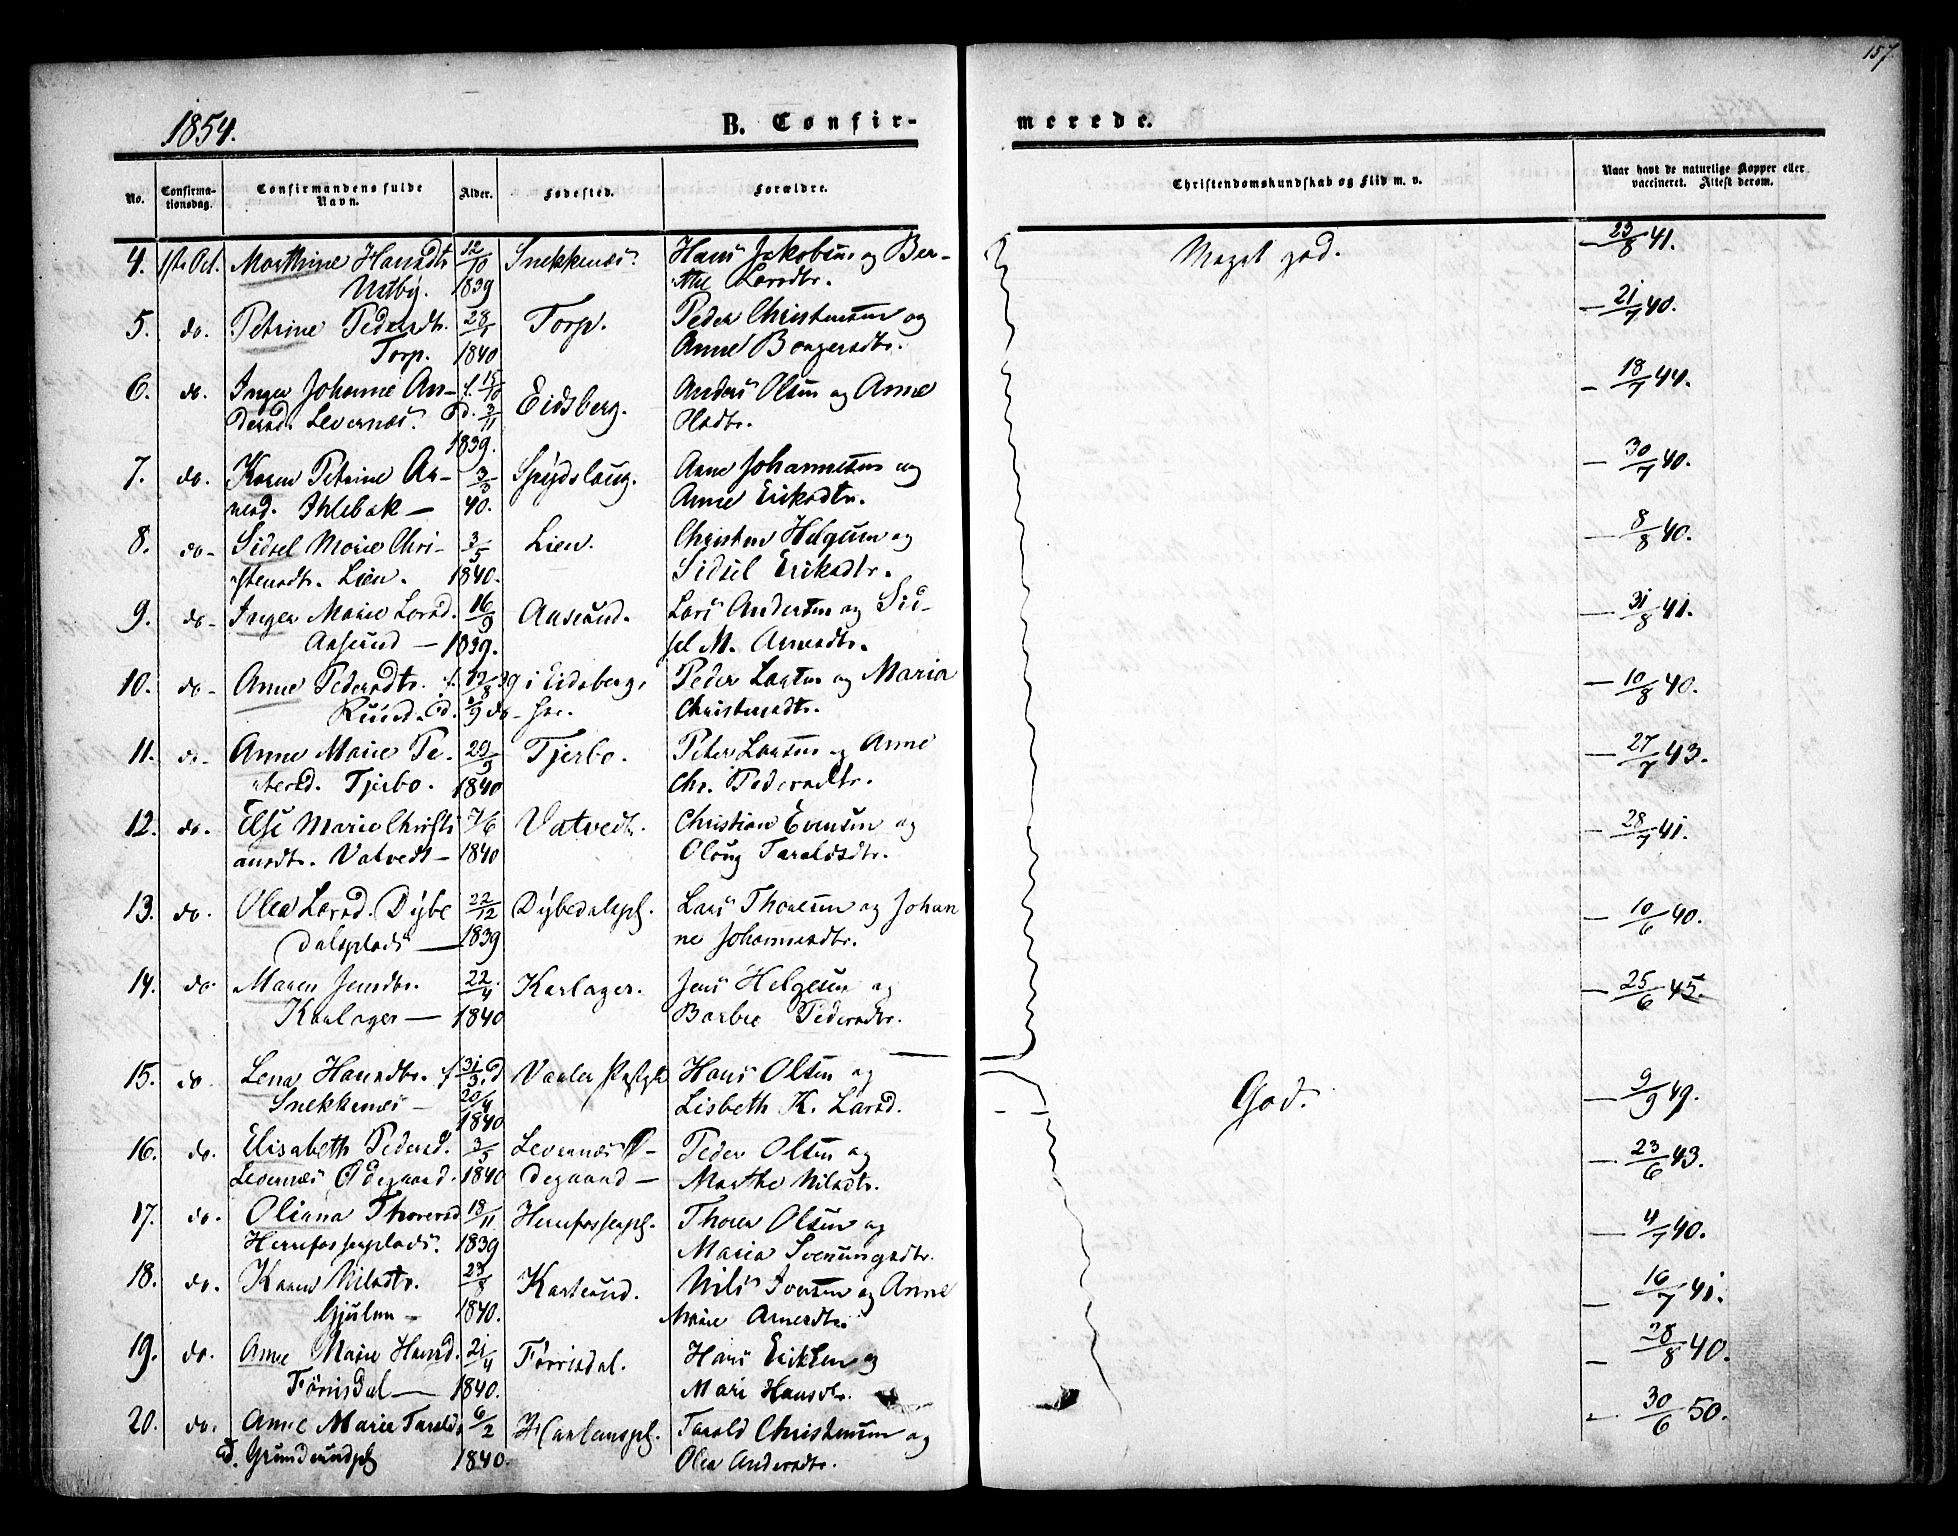 157
1854.
B. Confir-
merede.
No.
Confirma-
tionsdag.
Confirmandens fulde
Navn.
Alder.
Fødested.
Forældre.
Christendomskundskab og Flid m. v.
Naar havt de naturlige Kopper eller
vaccineret. Attest derom.
4. 1ste Oct. Marthine Hansdtr 12/10 Snekkenæs. Hans Jakobsen og Ber- Meget god. — 23/8 41.
Ustby. 1839 the Larsdtr.
5. do. Petrine Pedersdtr. 28/ Torp. Peder Christensen og — 21/7 40.
Torp. 1840 Anne
6. do. Inger Johanne An- f. 15/10 Eidsberg. Anders Olsen og Anne — 18/7 44.
dersd. Levernæs. d. 3/11
1839.
7. do. Karen Petrine Ar- 3/ Spydsloug. Arne Johannesen og — 30/7 40.
nesd. Ihlebak — 40. Anne Eriksdtr.
8. do- Sidsel Marie Chri- 3/5 Lien. Christen Helgesen og — 8/8 40.
stensdtr. Lien. 1840. Sidsel Eriksdtr.
9. do- Inger Marie Larsd. 16/9 Aaserud. Lars Andersen og Sid- — 31/8 41.
Aaserud — 1839. sel M. Arnesdtr.
10. do- Anne Pedersdtr. f. 12/8 39 i Eidsberg, Peder Larsen og Maria — 10/8 40.
Ruud. d. /9 do- Christensdtr.
11. do- Anne Marie Pe- 29/9 Tjerbo. Peter Larsen og Anne — 27/7 43.
tersd. Tjerbo. 1840 Chr. Pedersdtr.
12. do. Else Marie Christi 7/6 Vatvedt. Christian Evensen og — 28/7 41.
ansdtr. Vatvedt — 1840 Oloug Taraldsdtr.
13. do. Olea Larsd. Dybe 22/12 Dybedalspl. Lars Thoresen og Johan — 10/6 40.
dalsplads — 1839 ne Johannesdtr.
14. do Maren Jensdtr. 22/4 Karlager. Jens Helgesen og — 25/6 45.
Karlager — 1840 Barbro Pedersdtr.
15. do. Lena Hansdtr. f 31/3. d Vaaler Hans Olsen og God. — 9/9 49.
Snekkenæs — 20/4 Lisbeth K. Larsd.
1840
16. do. Elisabeth Pedersd. 3/5 Levernæs Ø- Peder Olsen og — 23/6 43.
Levernæs Ødegaard. 1840 degaard — Marthe Nilsdtr.
17. do. Oliana Thoresd 18/11 Herrefosserpl. Thorer Olsen og — 4/7 40.
Herrefosserplads. 1839 Maria Svenungsdtr.
18. do. Karen Nilsdtr. 23/8 Karlsrud. Nils Iversen og Anne — 16/7 41.
Gjulem — 1840. Marie Arnesdtr.
19. do. Anne Marie Hansd. 21/4 Førrisdal. Hans Eriksen og — 28/8 40.
Førrisdal — 1840. Mari Hansdtr.
20. do. Anne Marie Taralds 6/2 Tarald Christensen og 30/6 50.
d. Grimsrudpl 1840. Olea Andersdtr.